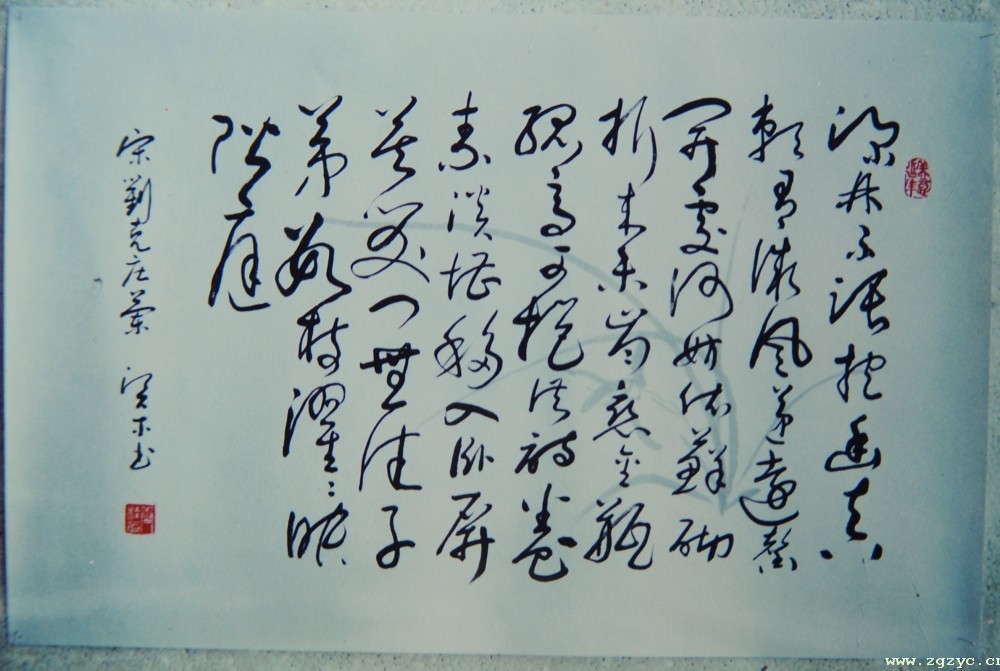 深林不語抱幽貞
賴有微風遞遠馨
開處何妨依蘚砌
折來未肯戀金瓶
孤高可挹供詩卷
素淡堪移入卧屏
莫笑門無佳子
弟數枝濯濯映
階庭
宋劉克庄蘭
木书
www.zgzyc.cn